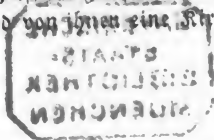 d von ihnen eine Kir
STAATS-
BIBLIOTHEK
MUENCHEN